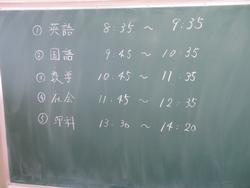 ① 英語 8:35 ~ 9:35
② 国語 9:45 ~ 10:35
③ 数学 10:45 ~ 11:35
④ 社会 11:45 ~ 12:35
⑤ 理科 13:30 ~ 14:20